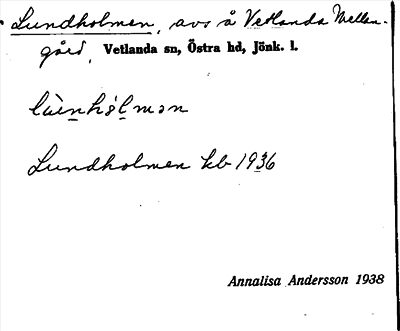 Lundholmen, avs å Vetlanda Mellan-
gård, Vetlanda sn, Östra hd, Jönk. l.
lùenhólmən
Lundholmen kb 1936
Annalisa Andersson 1938